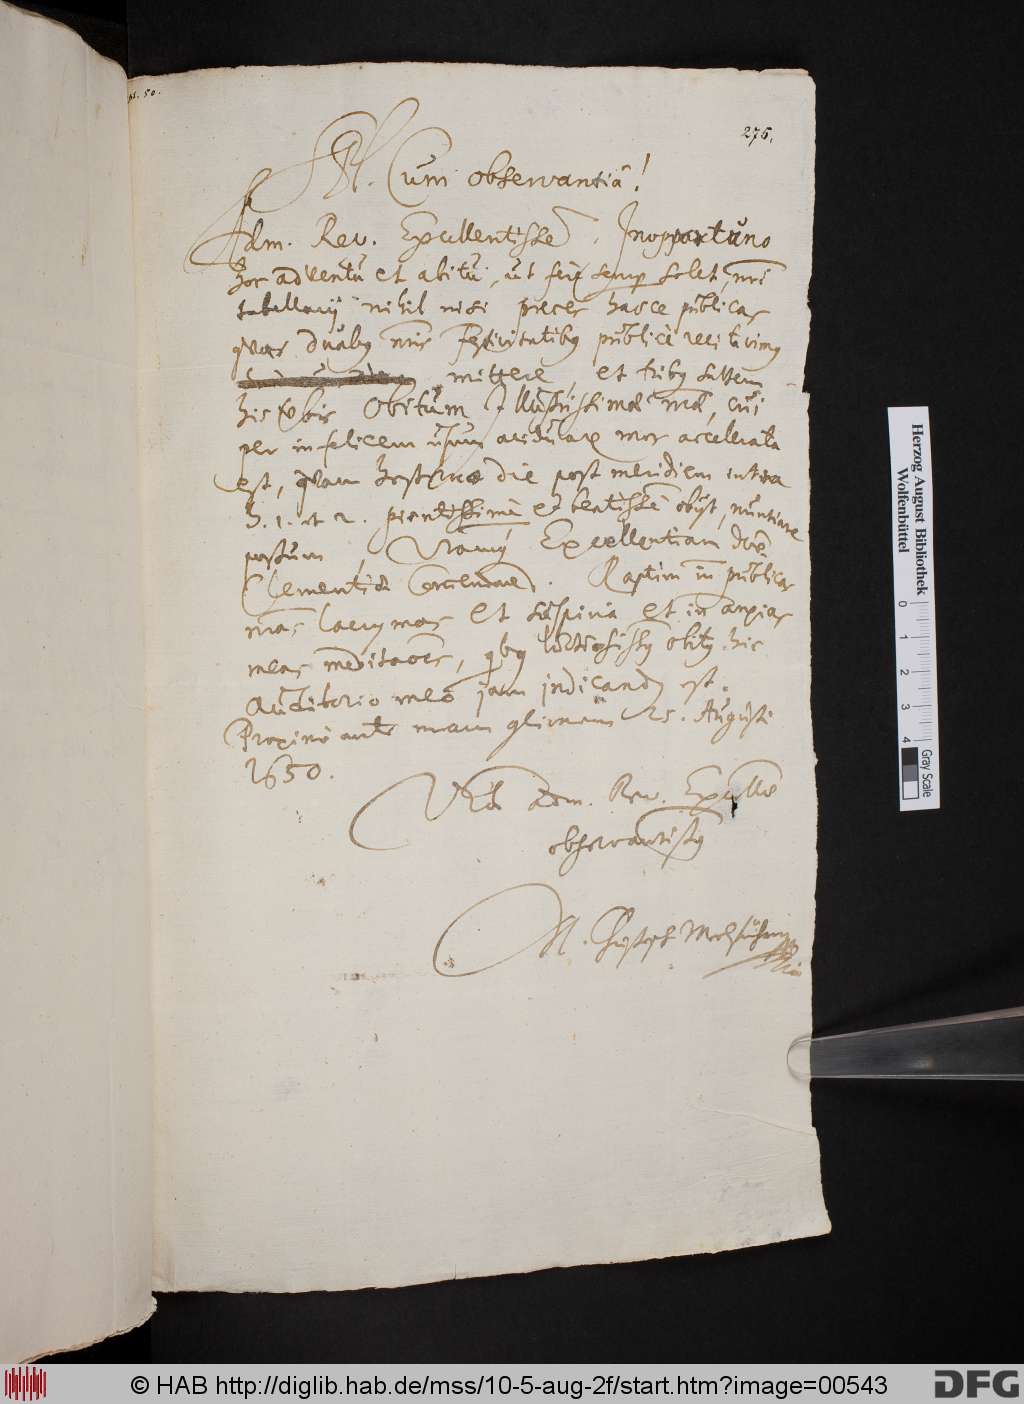 pr. 50.
276.
Cum observantiâ!
Adm. Rev. Excellentisse. Inopportuno
hoc adventu et abitu, ut ferè semp solet, nri
tabellarij nihil nisi preces hasce publicas
quas duabq nris festivitatibq publicè recitavimq
mittere, et tribq saltem
hisce vbis Obitum Illustrissimæ nræ, cui
per infelicem usum acidularu mors accelerata
est, quam hesterno die post meridiem intra
h. 1. et 2. pientissimè et beatissè obijt, nuntiare
possum, Excellentiam
Clementiæ Raptim in publicas
nras lacrymas et suspiria et in anxias
meas meditaoes, qbq luctuosissq obitq hic
Auditorio meo jam indicandq est.
Proximo ante meam 25. Augusti
1650.
adm. Rev. Excellæ
observantissq
M. Christoph
Herzog August Bibliothek
Wolfenbüttel
0 1 2 3 4
Gray Scale
© HAB http://diglib.hab.de/mss/10-5-aug-2f/start.htm?image=00543
DFG